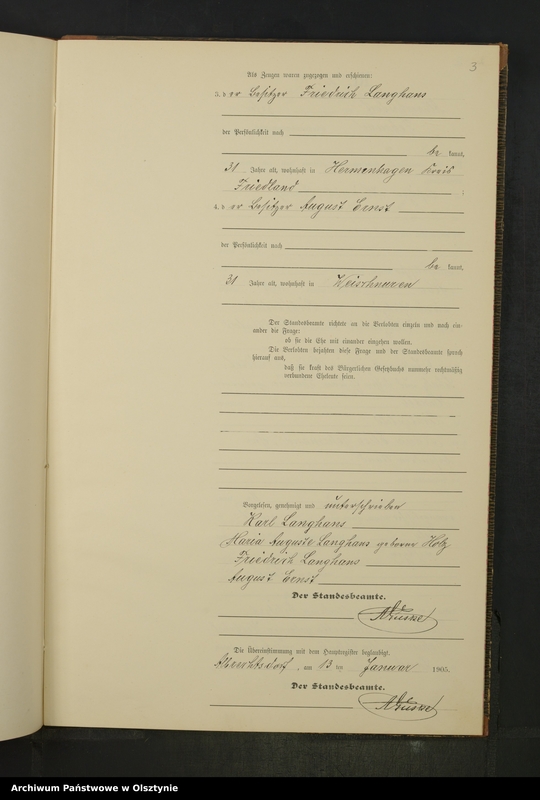 3
Als Zeugen waren zugezogen und erschienen:
3. der Besitzer Friedrich Langhans
der Persönlichkeit nach
be kannt,
31 Jahre alt, wohnhaft in Hermenhagen Kreis
Friedland ;
4. der Besitzer August Ernst
der Persönlichkeit nach
be kannt,
31 Jahre alt, wohnhaft in Weischnuren
Der Standesbeamte richtete an die Verlobten einzeln und nach ein-
ander die Frage:
ob sie die Ehe mit einander eingehen wollen.
Die Verlobten bejahten diese Frage und der Standesbeamte sprach
hierauf aus,
daß sie kraft des Bürgerlichen Gesetzbuchs nunmehr rechtmäßig
verbundene Eheleute seien.
Vorgelesen, genehmigt und unterschrieben
Karl Langhans
Maria Auguste Langhans geborene Holz
Friedrich Langhans
August Ernst
Der Standesbeamte.
Die Übereinstimmung mit dem Hauptregister beglaubigt.
Albrechtsdorf, am 13 ten Januar 1905.
Der Standesbeamte.
Archiwum Państwowe w Olsztynie